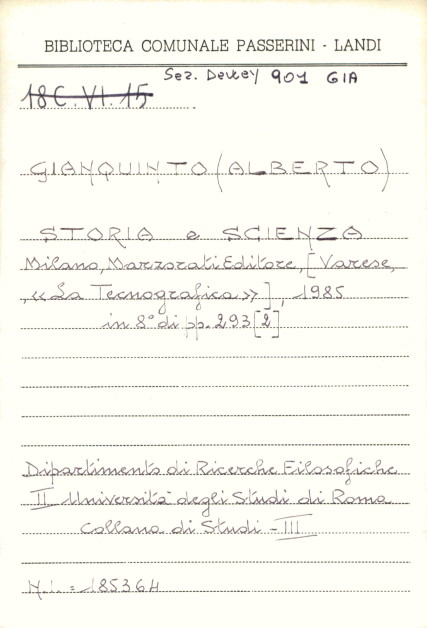 BIBLIOTECA COMUNALE PASSERINI - LANDI
Sez. Dewey 901 GIA
18C.VI.15
GIANQUINTO (ALBERTO)
STORIA e SCIENZA
Milano, Marzorati Editore, [Varese,
"La Tecnografica"], 1985
in 8° di pp. 293 [2]
Dipartimento di Ricerche Filosofiche
II Università degli Studi di Roma
Collana di Studi - III
N.i. = 185364